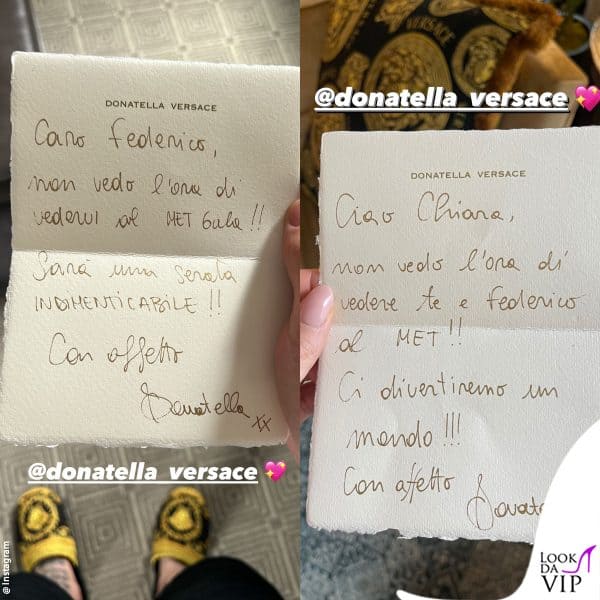 @donatella_versace
DONATELLA VERSACE
Caro Federico,
non vedo l'ora di
vedervi al MET Gala !!
Sarà una serata
INDIMENTICABILE !!
Con affetto
Donatella xx
@donatella_versace
@ Instagram
VERSACE
@donatella_versace
DONATELLA VERSACE
Ciao Chiara,
non vedo l'ora di
vedere te e Federico
al MET !!
Ci divertiremo un
mondo !!!
Con affetto
Donate
LOOK
DA
VIP